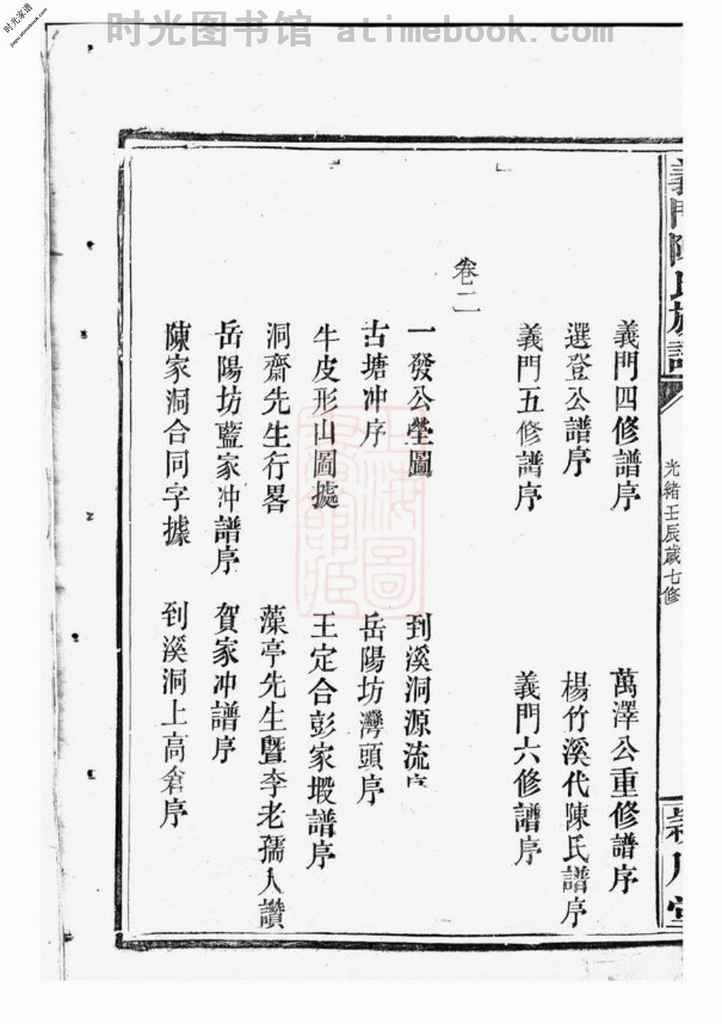 时光图书馆 atimebook.com
时光家谱
jiapu.atimebook.com
義門陳氏族譜
光緒壬辰歲七修
義門四修譜序 萬澤公重修譜序
選登公譜序 楊竹溪代陳氏譜序
義門五修譜序 義門六修譜序
卷二
一發公塋圖 到溪洞源流序
古塘冲序 岳陽坊灣頭序
牛皮形山圖 王定合彭家塅譜序
洞齋先生行畧 藻亭先生暨李老孺人讚
岳陽坊藍家冲譜序 賀家冲譜序
陳家洞合同字據 到溪洞上高倉序